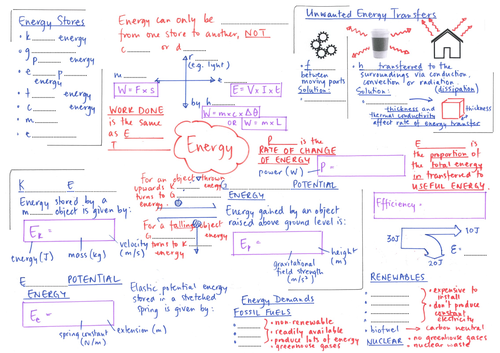 Energy Stores
• k____ energy
• g____
p____ energy
• e____ p____
energy
• t____ energy
• c____ energy
• m____
• e____
Energy can only be ____
from one store to another, NOT
c____ or d____
r____
(e.g. light)
m____
W = F x s
E = V x I x t
by h____
W = m x c x Δθ
OR W = m x L
WORK DONE
is the same
as E____
T____
Energy
Unwanted Energy Transfers
• f____
between
moving parts
Solution:
• h____ transferred to the
surroundings via conduction,
convection or radiation.
Solution: (dissipation)
thickness and
thermal conductivity
affect rate of energy transfer
thickness
P____ is the
RATE OF CHANGE
OF ENERGY
power (W)
P =
E____
is the
proportion of
the total energy
in transferred to
USEFUL ENERGY.
K____ E____
Energy stored by a
m____ object is given by:
E_K =
energy (J)
mass (kg)
velocity
(m/s)
For an object thrown
upwards K____ energy
turns to G____
energy
For a falling object
G____ energy
turns to K____
energy
____ POTENTIAL
ENERGY
Energy gained by an object
raised above ground level is:
E_p =
gravitational
field strength
(m/s²)
height
(m)
Efficiency =
30J
10J
20J
E =
E____ POTENTIAL
ENERGY
E_e =
spring constant
(N/m)
extension (m)
Elastic potential energy
stored in a stretched
spring is given by:
Energy Demands
FOSSIL FUELS
• non-renewable
• readily available
• produce lots of energy
• greenhouse gases
RENEWABLES
• expensive to
install
• don't produce
constant
electricity
• biofuel → carbon neutral
NUCLEAR
• no greenhouse gases
• nuclear waste